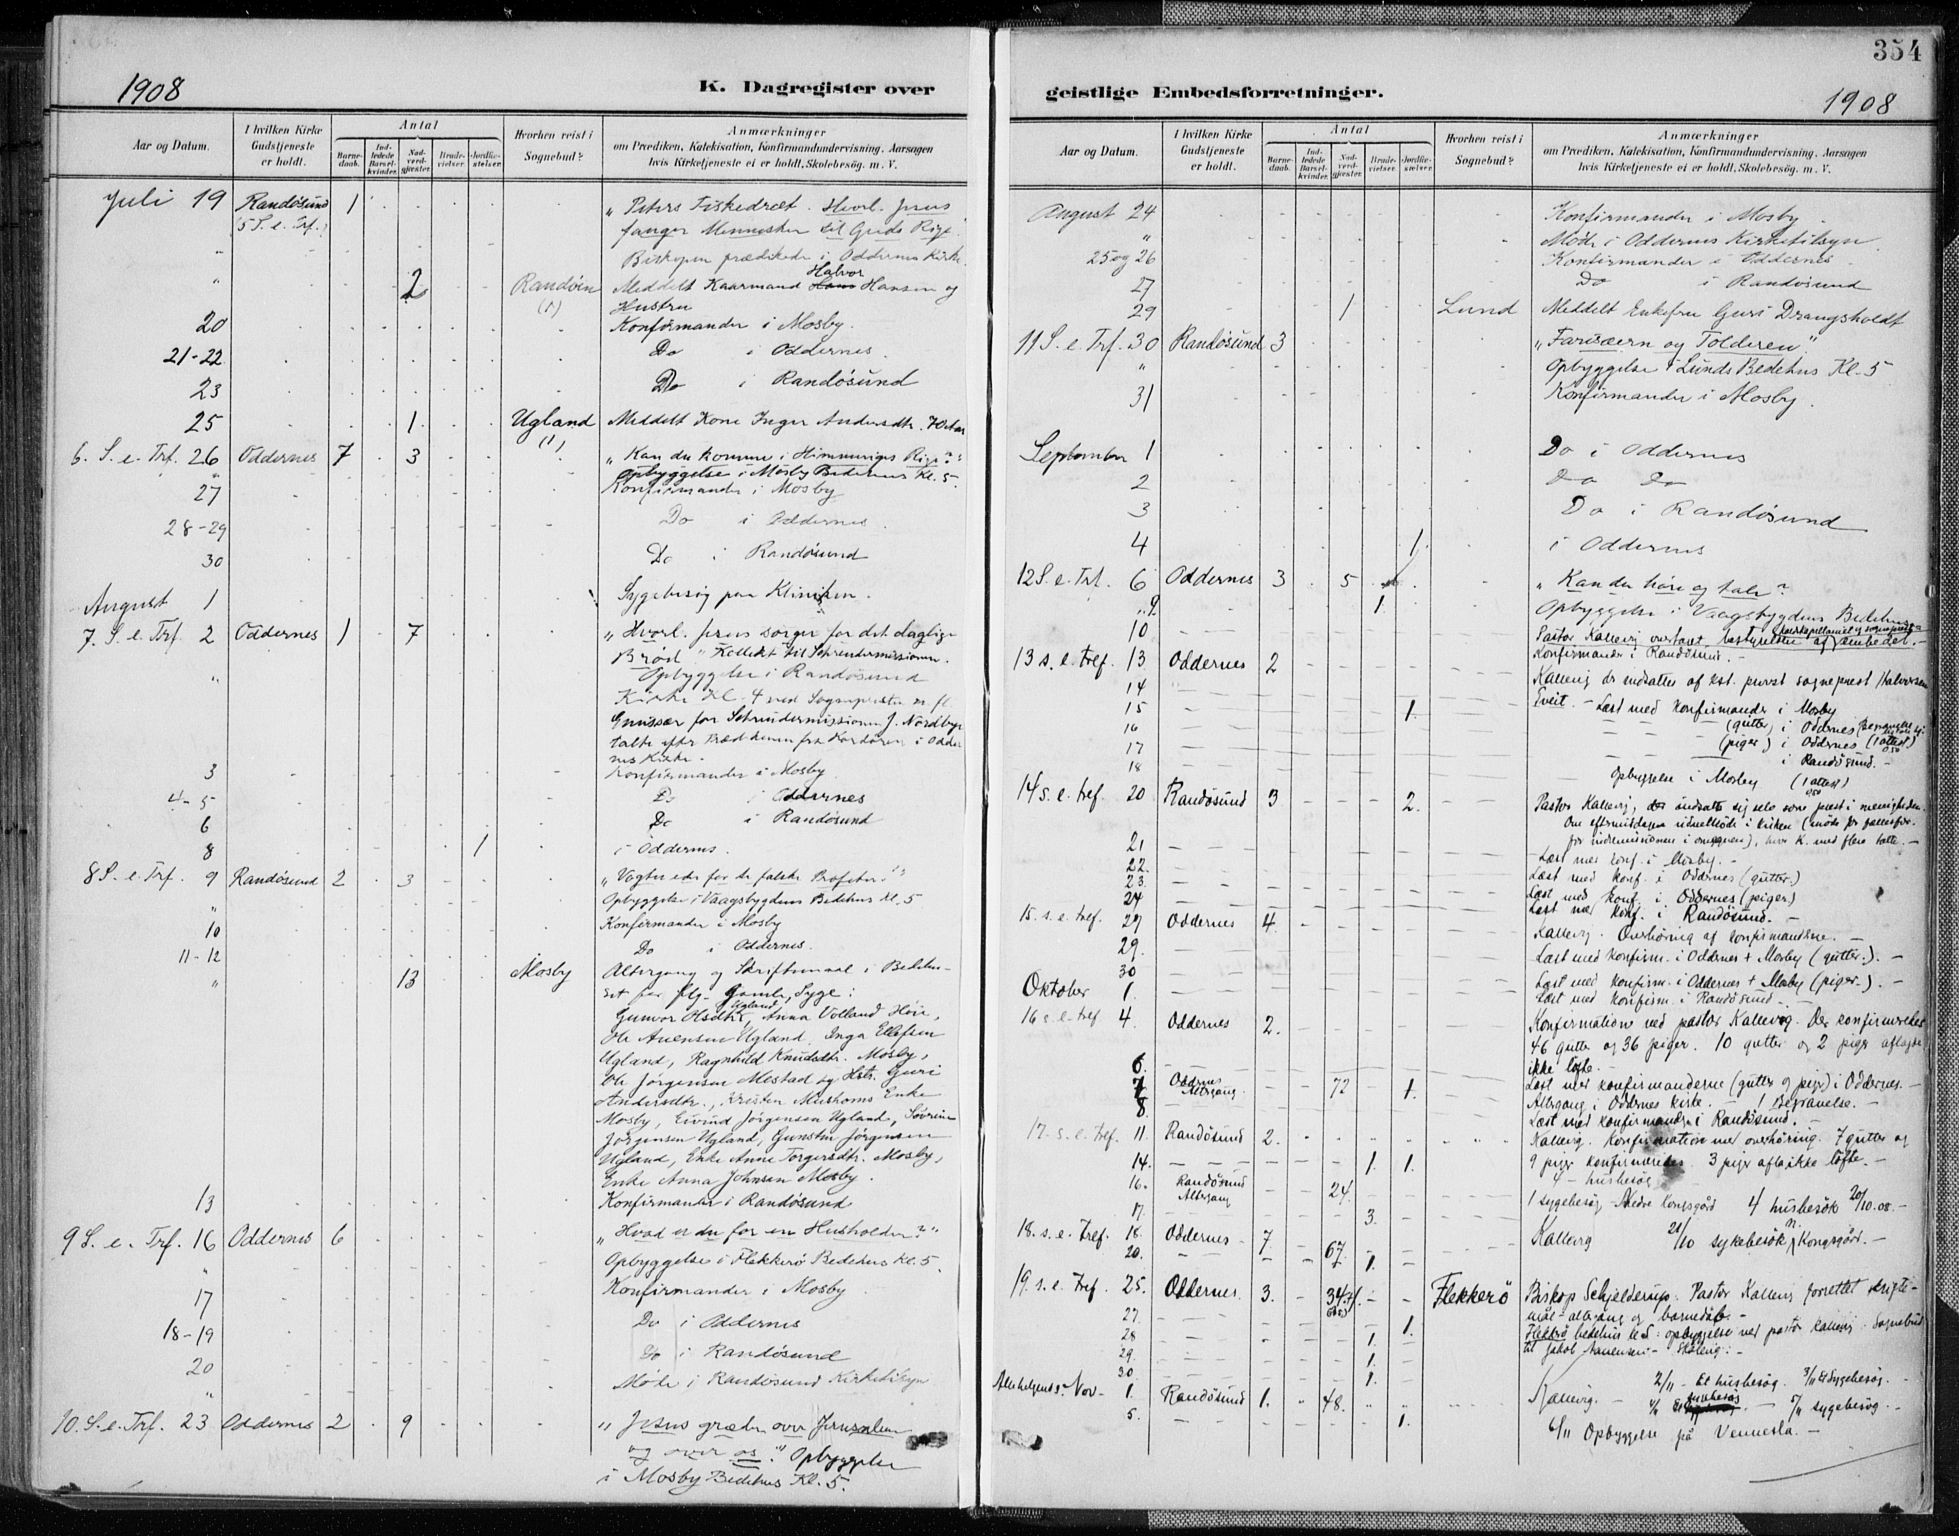 1908
K. Dagregister over
Aar og Datum.
I hvilken Kirke Gudstjeneste er holdt.
Antal
Barne-daab.
Ind-ledede Barsel-kvinder.
Nad-verd-gjæster.
Brude-vielser.
Jordfæ-stelser.
Hvorhen reist i Sognebud?
Anmærkninger
om Prædiken, Katekisation, Konfirmandundervisning, Aarsagen
hvis Kirketjeneste ei er holdt, Skolebesøg. m. V.
Juli 19 Randøsund 1 „Peters Fiskedræt. Hvorl. Jesus
(5 S. e. Trf.) fanger Mennesker til Guds Rige.
" Biskopen prædikede i Oddernes Kirke.
" 2 Randøen Meddelt Kaarmand Halvor Hansen og
(1) Hustru
20 Konfirmander i Mosby.
21-22 Do i Oddernes.
23 Do i Randøsund
25 1 Ugland Meddelt Kone Inger Andersdtr.
(1)
6. S. e. Trf. 26 Oddernes 7 3 „Kan du komme i Himmeriges Rige?"
" Opbyggelse i Mosby Bedehus Kl. 5.
27 Konfirmander i Mosby
28-29 Do i Oddernes.
30 Do i Randøsund
August 1 Sygebesøg paa Kliniken.
7. S. e. Trf. 2 Oddernes 1 7 „Hvorl. Jesus sørger for det daglige
Brød" Kollekt til Schreudermissionen.
" Opbyggelse i Randøsund
Kirke Kl. 4 ved Sognepresten
for Schreudermissionen J. Nordby
talte efter Præd. fra Kordøren i Odder
nes Kirke.
3 Konfirmander i Mosby.
4-5 Do i Oddernes
6 Do i Randøsund
8 1 i Oddernes.
8 S. e. Trf. 9 Randøsund 2 3 „Vogter eder for de falske Profeter."
" Opbyggelse i Vaagsbygdens Bedehus Kl. 5
10 Konfirmander i Mosby
11-12 Do i Oddernes.
" 13 Mosby Altergang og Skriftemaal i Bedehu-
set for flg. Gamle, Syge:
Gunvor Hsdtr. Ugland, Anna Volland Høie,
Ole Auensen Ugland, Inga Ellefsen
Ugland, Ragnhild Knudsdtr. Mosby,
Ole Jørgensen Mestad og Hstr. Guri
Andersdtr., Enke
Mosby, Eivind Jørgensen Ugland, Søren
Jørgensen Ugland, Jørgensen
Ugland, Enke Anne Torgersdtr. Mosby,
Enke Anna Johnsen Mosby.
13 Konfirmander i Randøsund
9 S. e. Trf. 16 Oddernes 6 „Hvad er du for en Husholder?"
" Opbyggelse i Flekkerø Bedehus Kl. 5.
17 Konfirmander i Mosby
18-19 Do i Oddernes
20 Do i Randøsund
" Møte i Randøsund Kirketilsyn
10. S. e. Trf. 23 Oddernes 2 9 „Jesus græder over Jerusalem
og over os." Opbyggelse
i Mosby Bedehus Kl. 5.
354
geistlige Embedsforretninger.
1908
Aar og Datum.
I hvilken Kirke Gudstjeneste er holdt.
Antal
Barne-daab.
Ind-ledede Barsel-kvinder.
Nad-verd-gjæster.
Brude-vielser.
Jordfæ-stelser.
Hvorhen reist i Sognebud?
Anmærkninger
om Prædiken, Katekisation, Konfirmandundervisning, Aarsagen
hvis Kirketjeneste ei er holdt, Skolebesøg. m. V.
August 24 Konfirmander i Mosby.
" Møde i Oddernes Kirketilsyn.
25 og 26 Konfirmander i Oddernes.
27 Do i Randøsund
29 1 Lund Meddelt Enkefru Guri Drangsholdt
11 S. e. Trf. 30 Randøsund 3 „Farisæern og Tolderen."
" Opbyggelse i Lunds Bedehus Kl. 5
31 Konfirmander i Mosby.
September 1 Do i Oddernes
2 Do Do
3 Do i Randøsund
4 1 i Oddernes
12 S. e. Trf. 6 Oddernes 3 5 „Kan du høre og tale?
" 9. 1. Opbyggelse i Vaagsbygdens Bedehus
10 Pastor Kallevig overtaget bestyrelsen af embedet.
Konfirmander i Randøsund.
13 s. e. tref. 13 Oddernes 2 Kallevig ble indsattes af kst. provst sogneprest Halvorsen
14 Eveit. - Læst med konfirmander i Mosby
15 1. (gutter) i Oddernes
16 (piger) i Oddernes (1 attest)
17 i Randøsund.
18 Opbyggelse i Mosby (1 attest)
14 s. e. tref. 20 Randøsund 3 2. Pastor Kallevig, indsatte sig selv som prest i menigheden.
Om eftermiddagen i kirken (møde for fællesfor.
21 for indremissionen i omegnen), hvor K. med flere talte. -
22. Læst med konf. i Mosby. -
23. Læst med konf. i Oddernes (gutter.)
24 Læst med konf. i Oddernes (piger)
Læst med konf. i Randøsund. -
15. s. e. tref. 27 Oddernes 4. Kallevig. Overhøring af konfirmanderne. -
29. Læst med konfirm. i Oddernes + Mosby (gutter.). -
30 Læst med konfirm. i Oddernes + Mosby (piger.). -
Oktober 1. Læst med konfirm. i Randøsund
16 s. e. tref 4. Oddernes 2. Konfirmation ved pastor Kallevig. Der konfirmeredes
46 gutter og 36 piger. 10 gutter og 2 piger aflagde
ikke løfte.
6. Læst med konfirmanderne (gutter og piger) i Oddernes. -
7 Oddernes Altergang 72 1. Altergang i Oddernes kirke. - 1 Begravelse. -
8. Læst med konfirmander i Randøsund. -
17. s. e. tref. 11. Randøsund 2. Kallevig. Konfirmation med overhøring. 7 gutter og
9 piger konfirmeredes. 3 piger afla ikke løfte. -
14. 1. 1. 4 - husbesøg
16. Randøsund Altergang 24. 1 sygebesøg Nedre Kongsgård 4 husbesøk 20/10.08. -
17. 3.
18. s. e. tref. 18. Oddernes 7 67. Kallevig 21/10 sykebesøk N. Kongsgård. -
20. 1.
19. s. e. tref. 25. Oddernes. 3. 34 Flekkerø Biskop Schjelderup. Pastor Kallevig forrettet skrifte-
mål - altergang og barnedåb. -
27. 1. Flekkerø bedehus kl. 5: opbyggelse ved pastor Kallevig. Sognebud
28 1. til Jakob Aanensen -
29. 1.
30 1. Kallevig. 2/11 - Et husbesøg. 3/11 Et sygebesøg. -
Allehelgensd. Nov. 1. Randøsund 1. 48. 4/11 sykebesøg - 5/11 sygebesøg. -
5. 1. 6/11 Opbyggelse på Vennesla. -